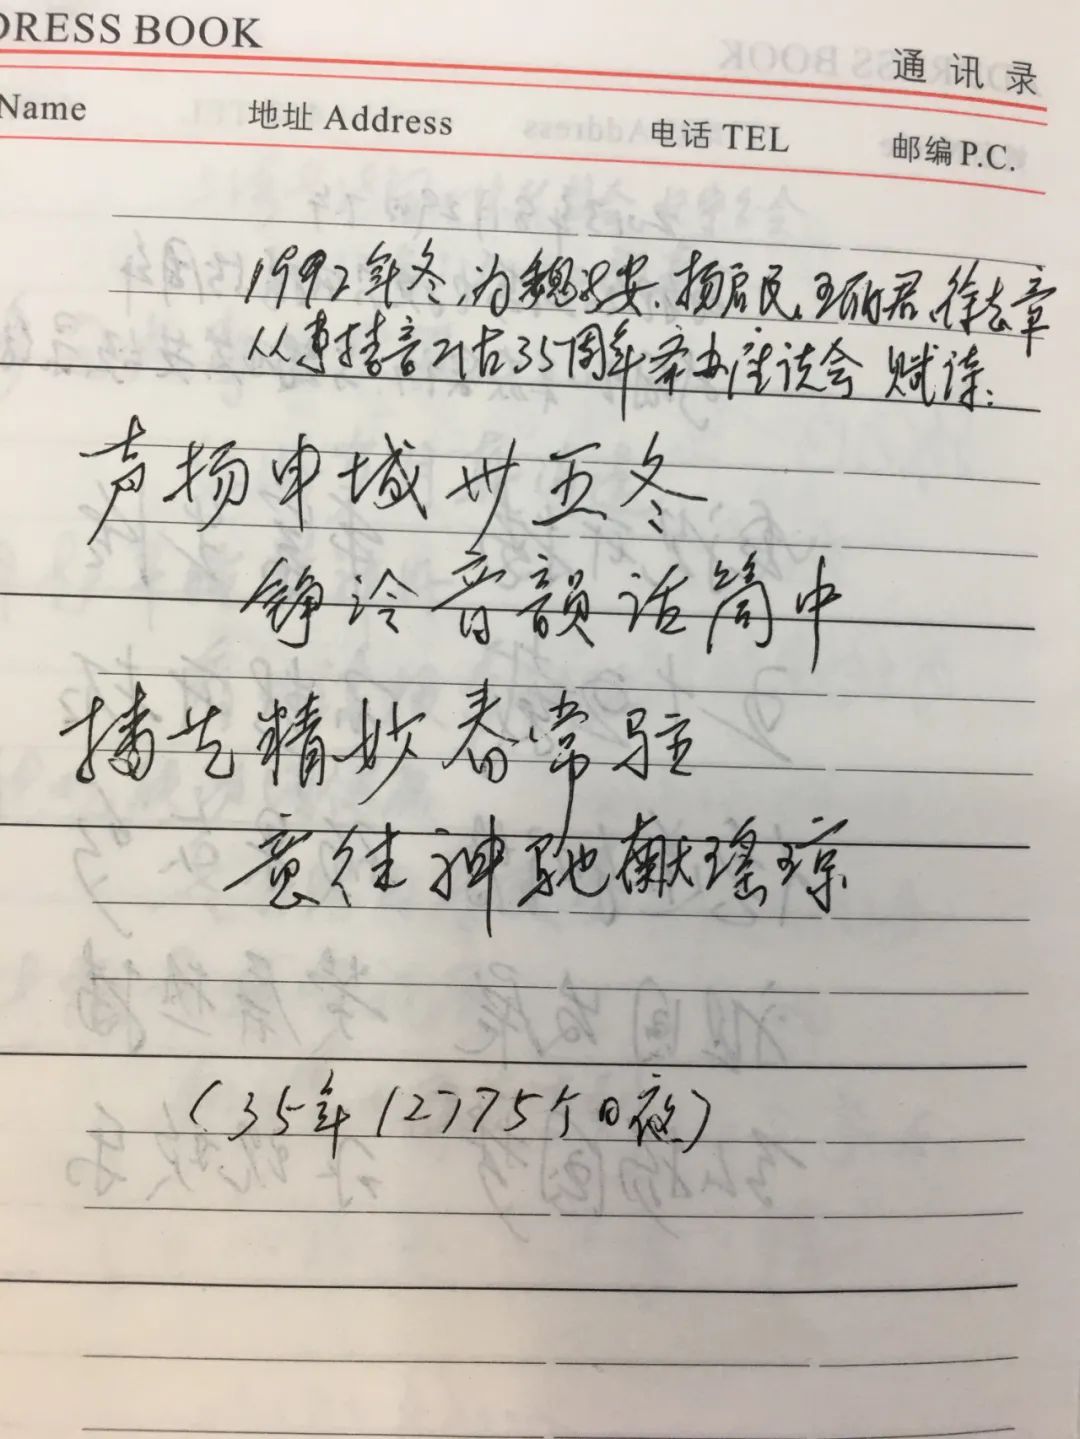 DRESS BOOK
通 讯 录
Name 地址 Address 电话 TEL 邮编 P.C.
1992年冬,为魏安、扬启民、王丽君、徐志章
从事播音生活35周年举办座谈会 赋诗:
声扬申城卅五冬
铮泠音韵话筒中
播先精妙春常驻
意往神驰献瑶琼
(35年12775个日夜)